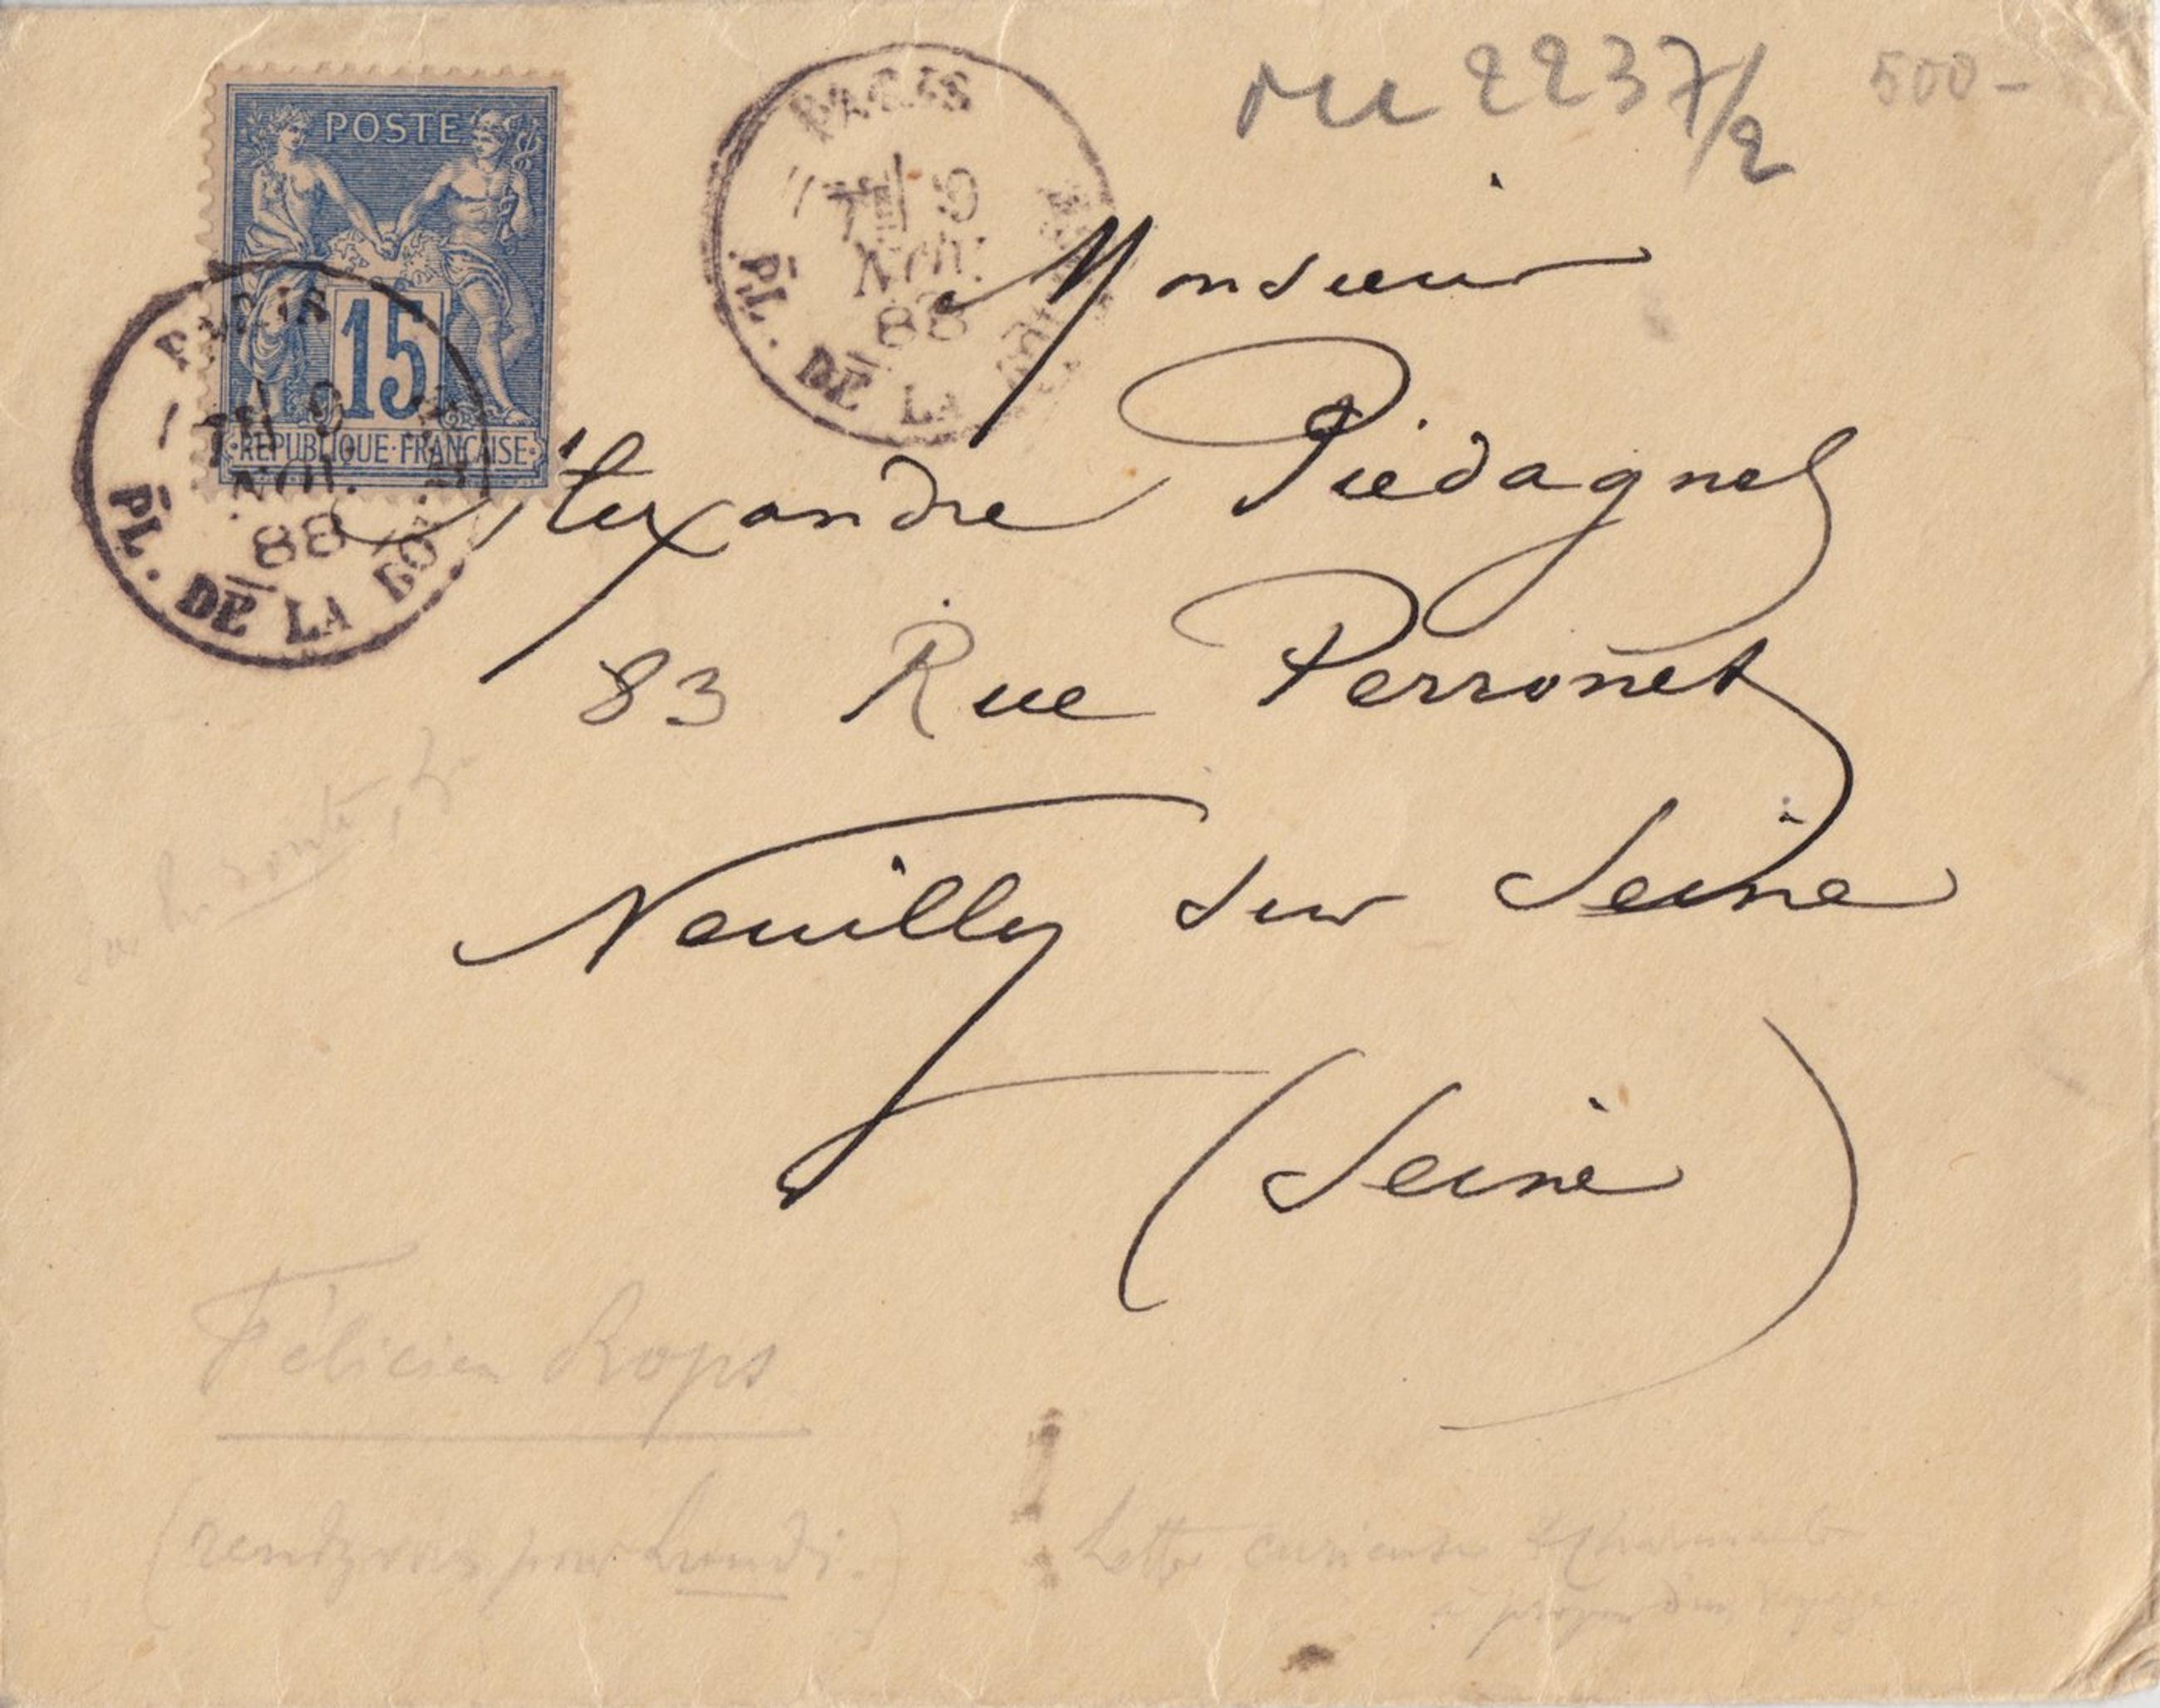 POSTE
15
REPUBLIQUE·FRANÇAISE
PARIS
9
NOV.
88
PL. DE LA
PARIS
9
NOV.
88
PL. DE LA
2237/2
500-
Monsieur
Alexandre Piédagnel
83 Rue Perronet
Neuilly sur Seine
(Seine)
Félicien Rops
(rendez vous pour Lundi.)
Lettre curieuse & charmante
à propos d'un voyage